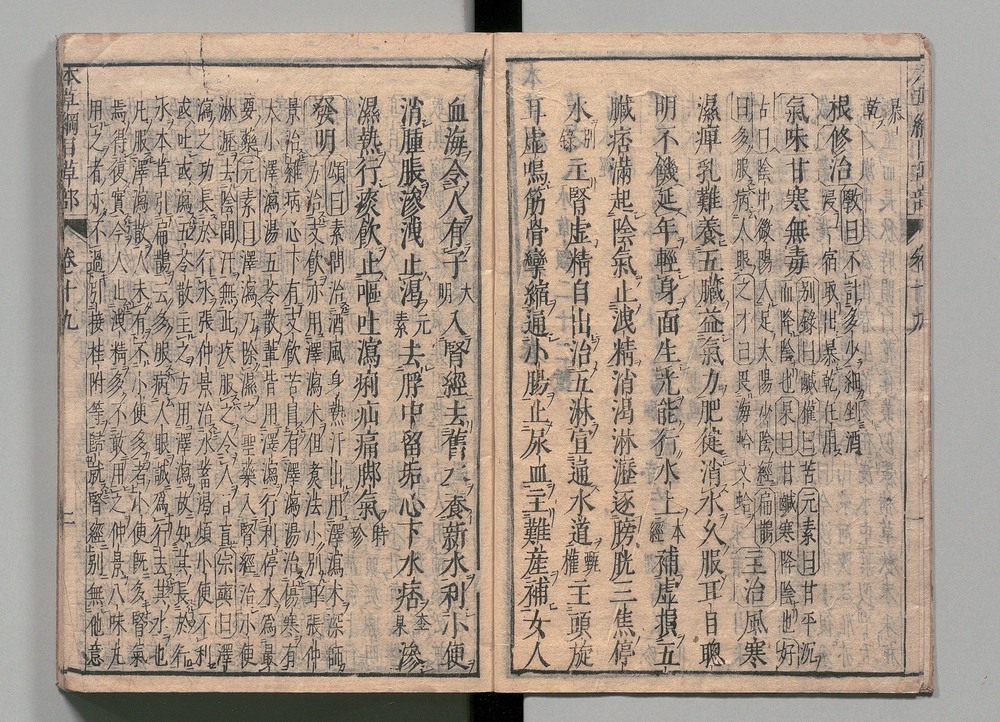 暴
乾
根修治斆曰不計多少細剉酒
浸一宿取出暴乾任用
氣味甘寒無毒別錄曰鹹權曰苦元素曰甘平沉
而降陰也杲曰甘鹹寒降陰也好
古曰陰中微陽入足太陽少陰經扁鵲
曰多服病人眼之才曰畏海蛤文蛤主治風寒
濕痺乳難養五臟益氣力肥健消水久服耳目聰
明不飢延年輕身面生光能行水上本經補虛損五
臟痞滿起陰氣止洩精消渴淋瀝逐膀胱三焦停
水別錄主腎虛精自出治五淋宣通水道甄權主頭旋
耳虛鳴筋骨攣縮通小腸止尿血主難產補女人
血海令人有子大明入腎經去舊水養新水利小便
消腫脹滲洩止渴元素去脬中留垢心下水痞李杲滲
濕熱行痰飲止嘔吐瀉痢疝痛脚氣時珍
發明頌曰素問治酒風身熱汗出用澤瀉朮深師
方治支飲亦用澤瀉朮但煮法小別耳張仲
景治雜病心下有支飲苦冒有澤瀉湯治傷寒有
大小澤瀉湯五苓散輩皆用澤瀉行利停水爲最
要藥元素曰澤瀉乃除濕之聖藥入腎經治小便
淋瀝去陰間汗無此疾服之令人目盲宗奭曰澤
瀉之功長於行水張仲景治水蓄渴煩小便不利
或吐或瀉五苓散主之方用澤瀉故知其長於行
水本草引扁鵲云多服病人眼誠爲行去其水也
凡服澤瀉散人未有不小便多者小便旣多腎氣
焉得復實今人止洩精多不敢用之仲景八味丸
用之者亦不過引接桂附等歸就腎經別無他意
本草綱目草部
卷十九
一